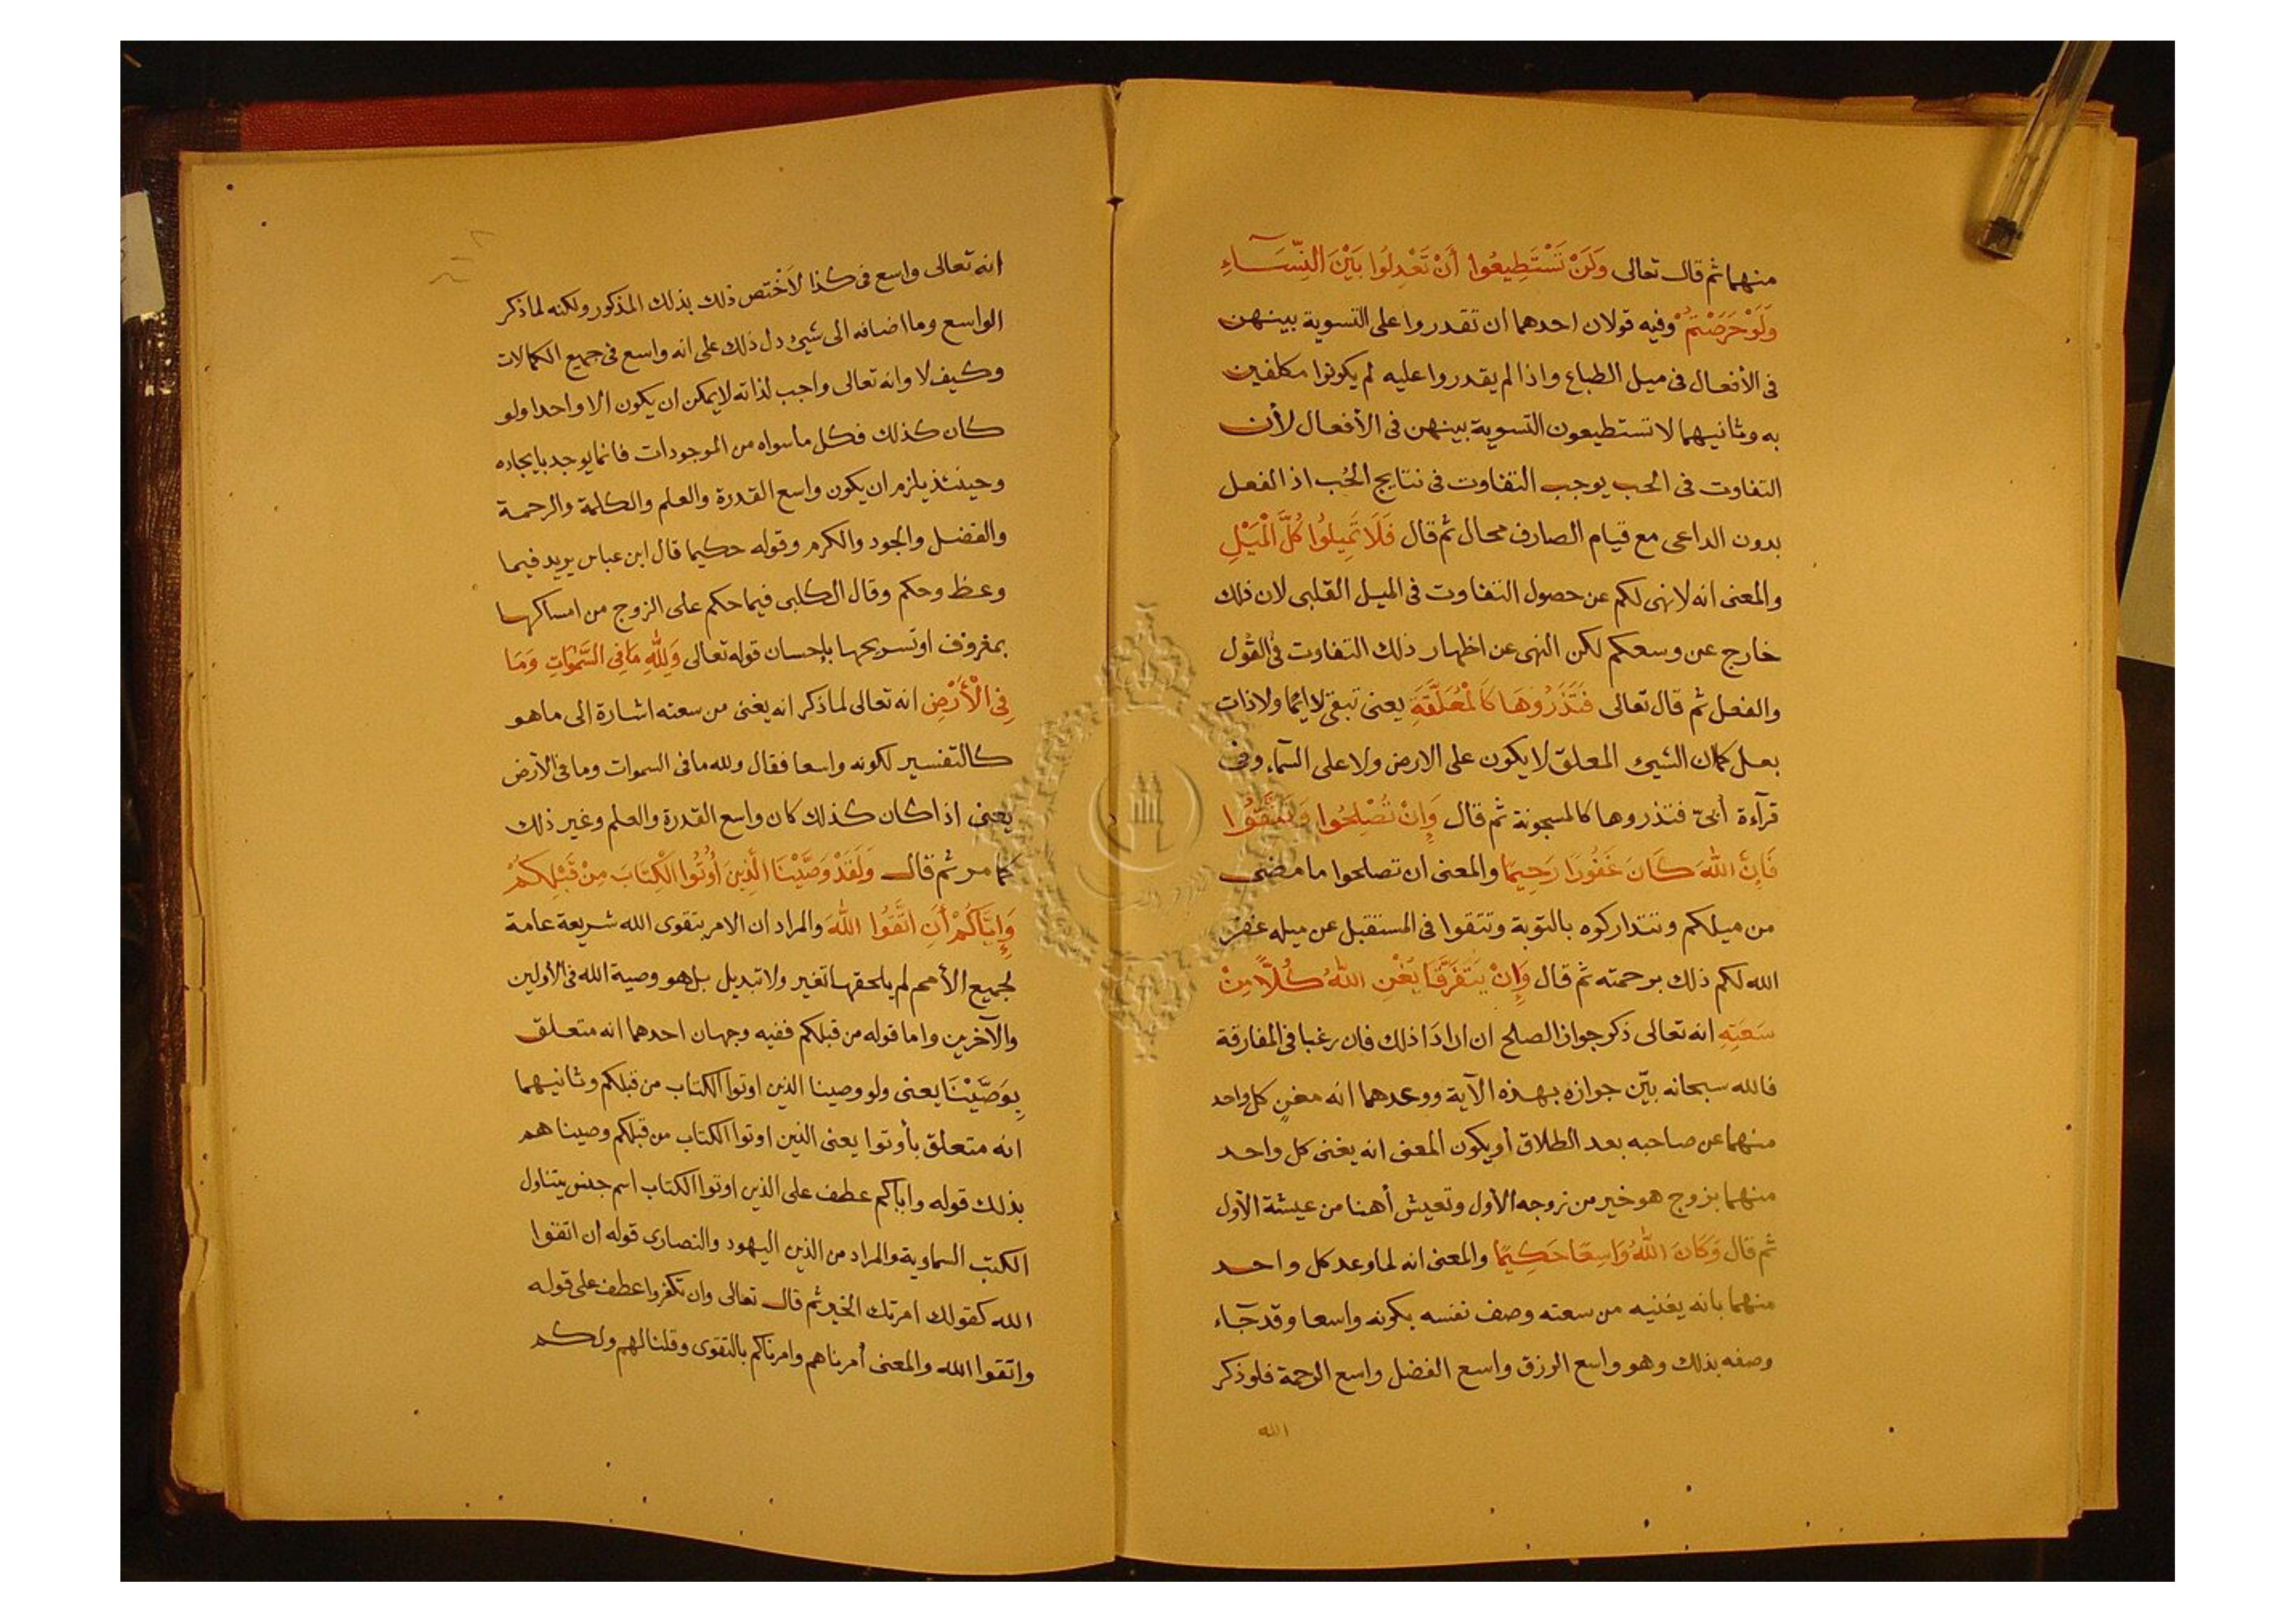 منهما ثم قال تعالى وَلَنْ تَسْتَطِيعُوا أَنْ تَعْدِلُوا بَيْنَ النِّسَآءِ
وَلَوْ حَرَصْتُمْ وفيه قولان احدهما ان تقدروا على التسوية بينهن
فى الأفعال فى ميل الطباع واذا لم يقدروا عليه لم يكونوا مكلفين
به وثانيهما لا تستطيعون التسوية بينهن فى الأفعال لأن
التفاوت فى الحب يوجب التفاوت فى نتايج الحُب اذ الفعل
بدون الداعى مع قيام الصارف محال ثم قال فَلَا تَمِيلُوا كُلَّ الْمَيْلِ
والمعنى انه لا نهى لكم عن حصول التفاوت فى الميل القلبى لان ذلك
خارج عن وسعكم لكن النهى عن اظهار ذلك التفاوت فى القول
والفعل ثم قال تعالى فَتَذَرُوهَا كَالْمُعَلَّقَةِ يعنى تبقى لا ايمًا ولا ذات
بعل كما ان الشيئ المعلق لا يكون على الارض ولا على السمآء وفى
قرآءة أبىّ فتذروها كالمسجونة ثم قال وَإِنْ تُصْلِحُوا وَتَتَّقُوا
فَإِنَّ اللهَ كَانَ غَفُورًا رَحِيمًا والمعنى ان تصلحوا ما مضى
من ميلكم وتتداركوه بالتوبة وتتقوا فى المستقبل عن ميله غفر
الله لكم ذلك برحمته ثم قال وَإِنْ يَتَفَرَّقَا يُغْنِ اللهُ كُلًّا مِنْ
سَعَتِهِ انه تعالى ذكر جواز الصلح ان ارادَا ذلك فان رغبا فى المفارقة
فالله سبحانه بيّن جوازه بهذه الآية ووعدهما انه مغنٍ كل واحد
منهما عن صاحبه بعد الطلاق أو يكون المعنى انه يغنى كل واحد
منهما بزوج هو خير من زوجه الأول وتعيش أهنا من عيشة الأول
ثم قال وَكَانَ اللهُ وَاسِعًا حَكِيمًا والمعنى انه لما وعد كل واحد
منهما بانه يغنيه من سعته وصف نفسه بكونه واسعا وقد جآء
وصفه بذلك وهو واسع الرزق واسع الفضل واسع الرحمة فلو ذكر
الله
انه تعالى واسع فى كذا لَاخْتص ذلك بذلك المذكور ولكنه لما ذكر
الواسع وما اضافه الى شيئ دل ذلك على انه واسع فى جميع الكمالات
وكيف لا وانه تعالى واجب لذاته لا يمكن ان يكون الا واحدا ولو
كان كذلك فكل ما سواه من الموجودات فانما يوجد بايجاده
وحينئذ يلزم ان يكون واسع القدرة والعلم والكلمة والرحمة
والفضل والجود والكرم وقوله حكيما قال ابن عباس يريد فيما
وعظ وحكم وقال الكلبى فيما حكم على الزوج من امساكها
بمعروف او تسريحها بإحسان قوله تعالى وَلِلَّهِ مَا فِى السَّمٰوَاتِ وَمَا
فِى الْأَرْضِ انه تعالى لما ذكر انه يغنى من سعته اشارة الى ما هو
كالتفسير لكونه واسعا فقال ولله ما فى السموات وما فى الأرض
يعنى اذا كان كذلك كان واسع القدرة والعلم وغير ذلك
كما مر ثم قال وَلَقَدْ وَصَّيْنَا الَّذِينَ أُوتُوا الْكِتَابَ مِنْ قَبْلِكُمْ
وَإِيَّاكُمْ أَنِ اتَّقُوا اللهَ والمراد ان الامر بتقوى الله شريعة عامة
لجميع الأمم لم يلحقها تغير ولا تبديل بل هو وصية الله فى الأولين
والآخرين واما قوله من قبلكم ففيه وجهان احدهما انه متعلق
بِوَصَّيْنَا يعنى ولو وصينا الذين اوتوا الكتاب من قبلكم وثانيهما
انه متعلق بأوتوا يعنى الذين اوتوا الكتاب من قبلكم وصيناهم
بذلك قوله واياكم عطف على الذين اوتوا الكتاب اسم جنس يتناول
الكتب السماوية والمراد من الذين اليهود والنصارى قوله ان اتقوا
الله كقولك امرتك الخير ثم قال تعالى وان تكفروا عطف على قوله
واتقوا الله والمعنى أمرناهم وامرناكم بالتقوى وقلنا لهم ولكم